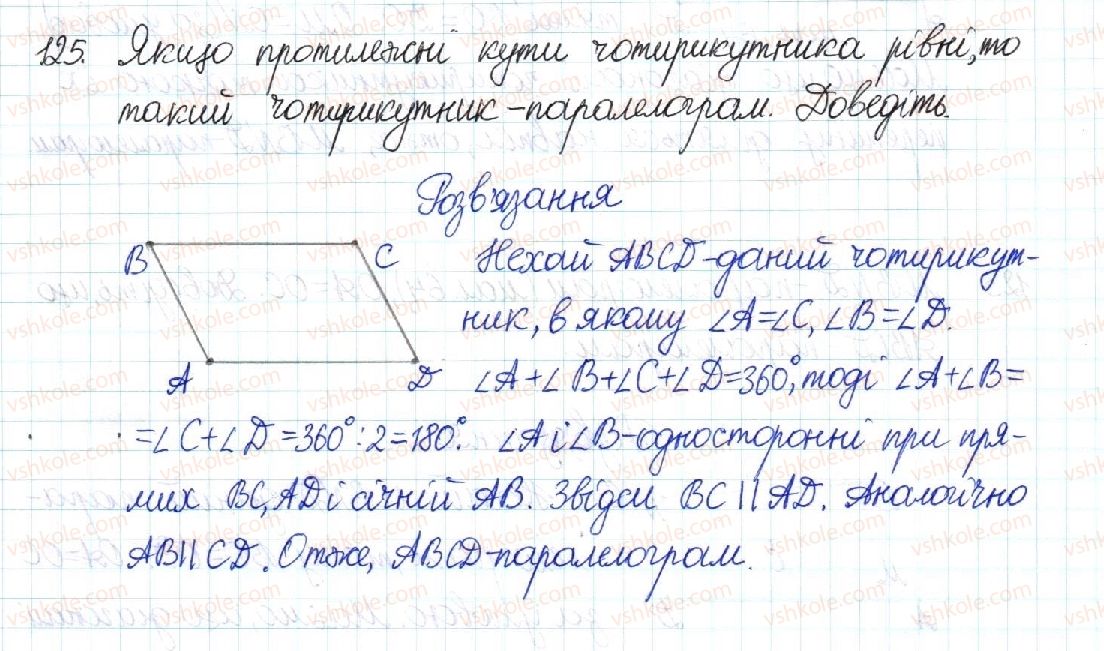 125. Якщо протилежні кути чотирикутника рівні, то
такий чотирикутник - паралелограм. Доведіть.
Розв'язання
B C
A D
Нехай ABCD - даний чотирикут-
ник, в якому ∠A=∠C, ∠B=∠D.
∠A+∠B+∠C+∠D=360°, тоді ∠A+∠B=
=∠C+∠D=360°:2=180°. ∠A і ∠B - односторонні при пря-
мих BC, AD і січній AB. Звідси BC || AD. Аналогічно
AB || CD. Отже, ABCD - паралелограм.
vshkole.com